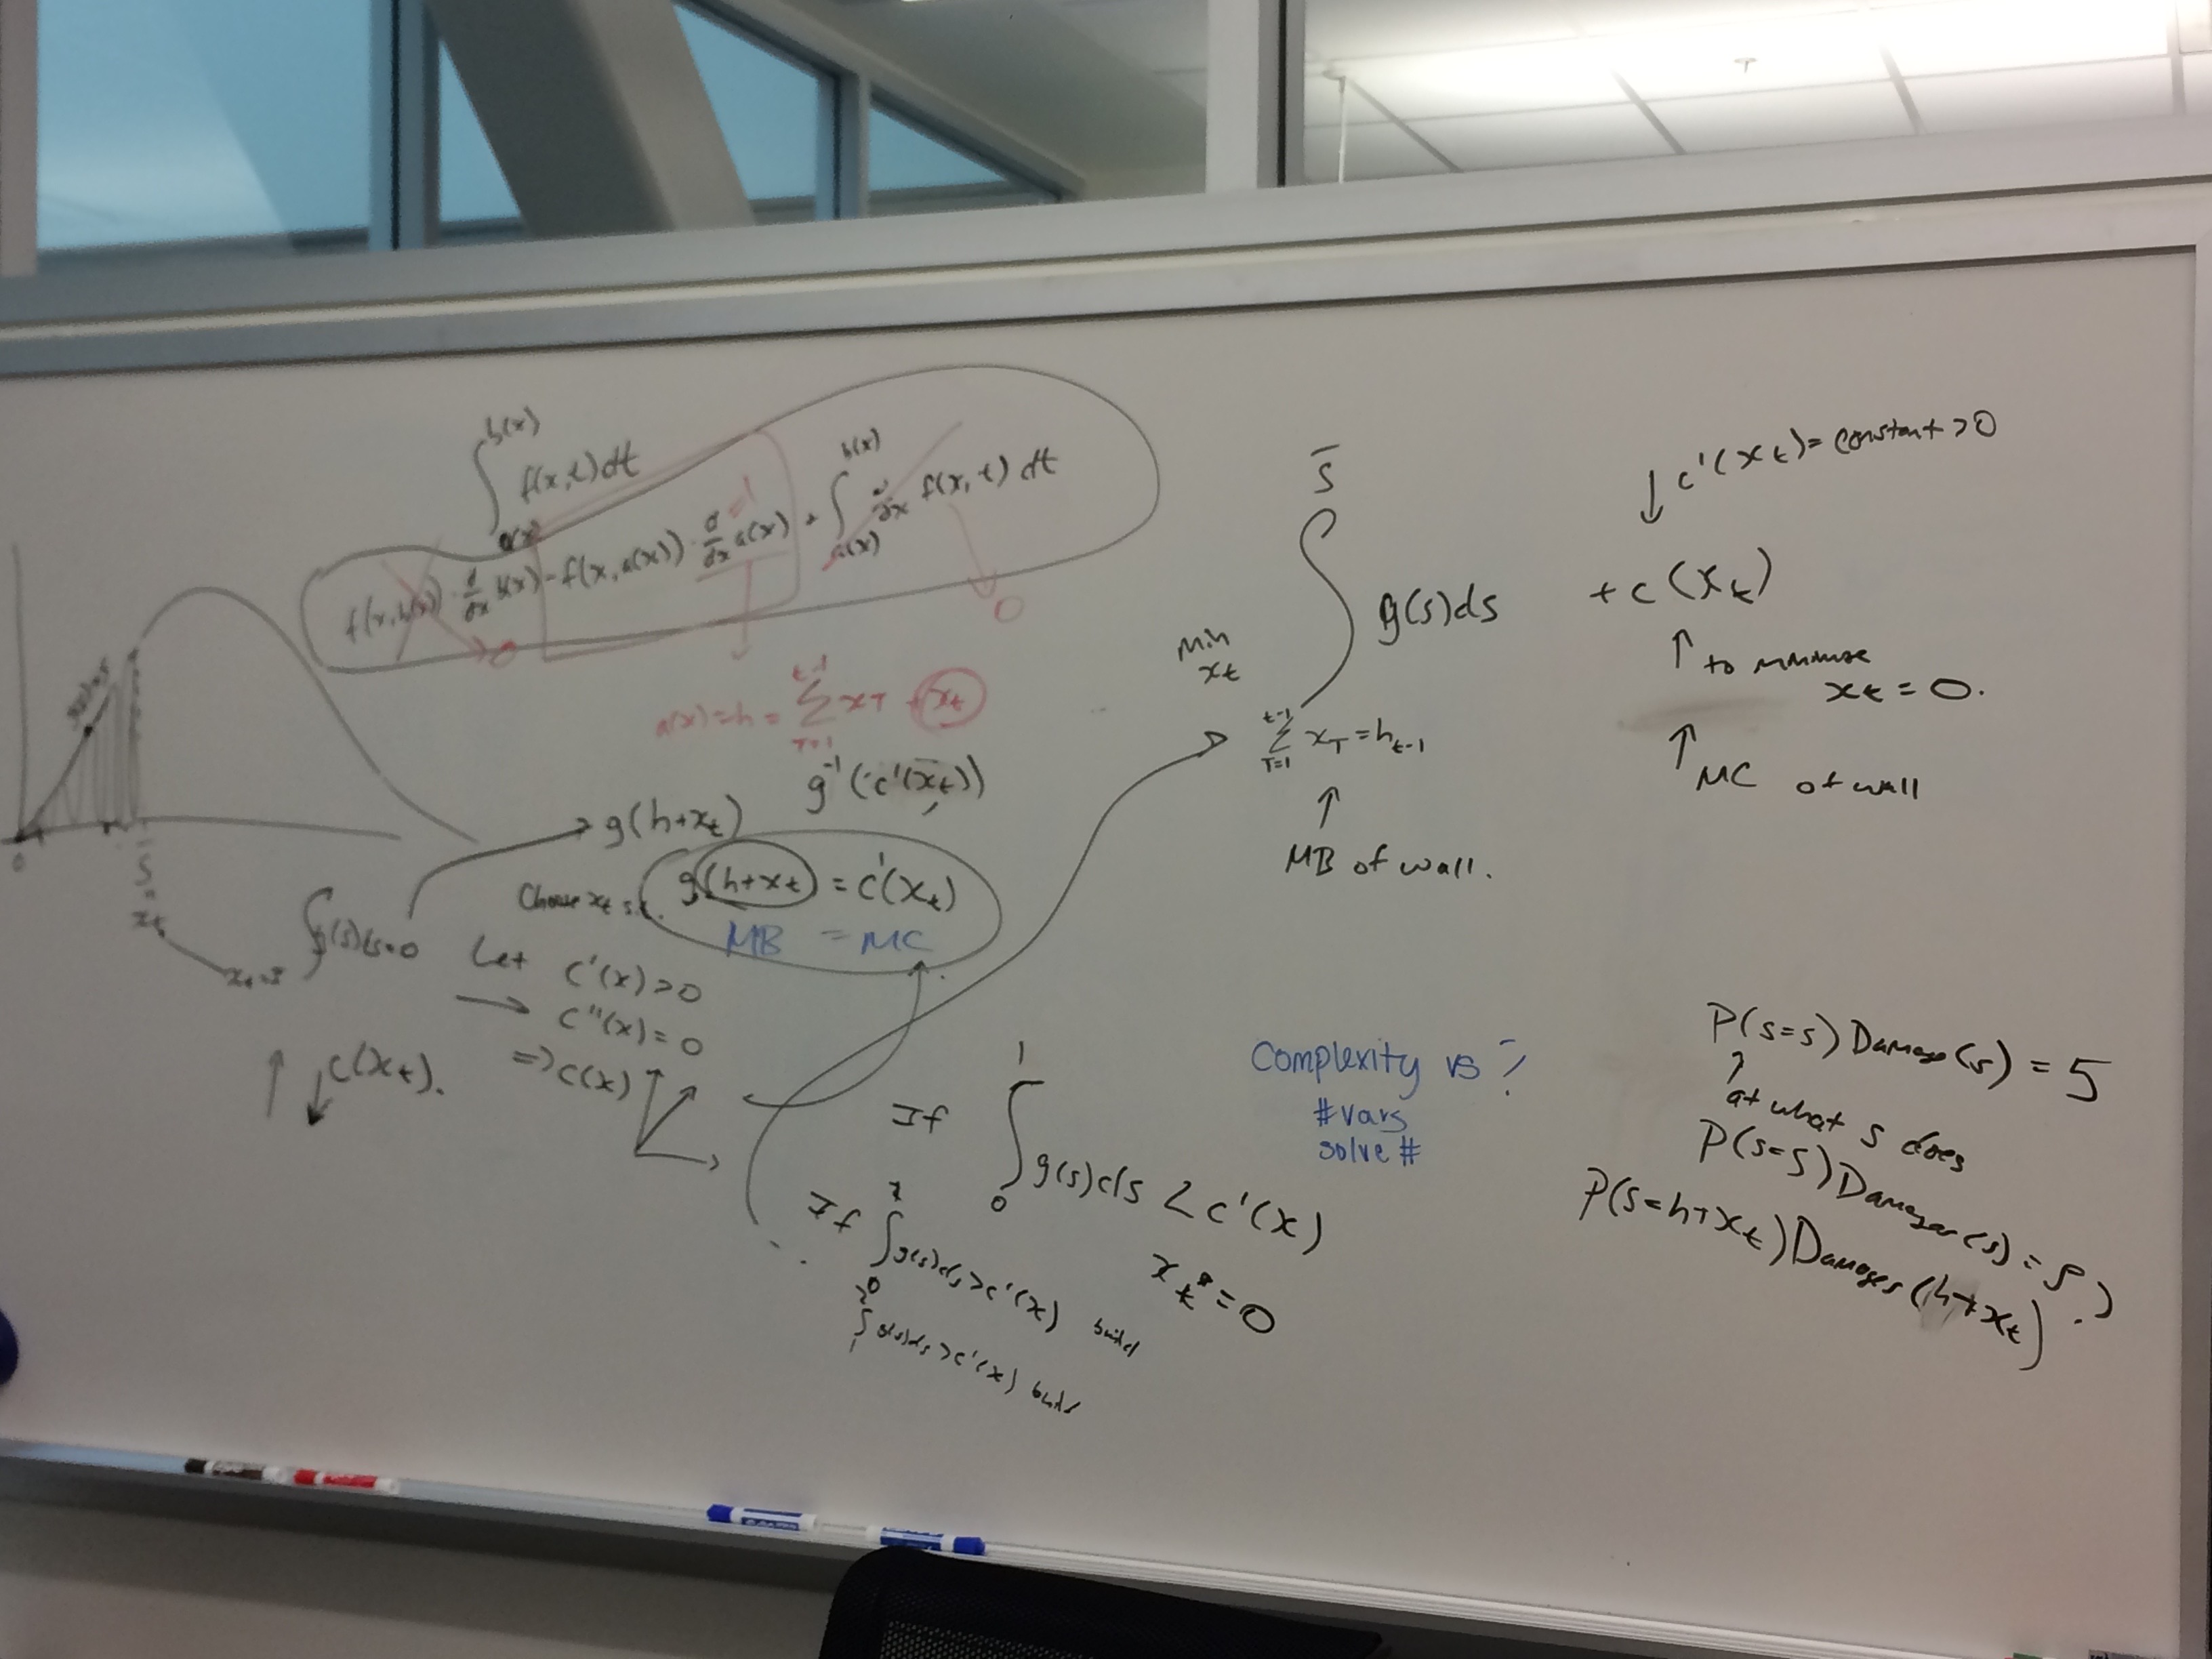 ∫_{a(x)}^{b(x)} f(x,t)dt
f(x,b(x)) · d/dx b(x) - f(x,a(x)) · d/dx a(x) + ∫_{a(x)}^{b(x)} ∂/∂x f(x,t) dt
=1
0
0
a(x) = h = Σ_{T=1}^{t-1} x_T + x_t
g^{-1}(c'(x_t))
g(h+x_t)
Choose x_t s.t. g(h+x_t) = c'(x_t)
MB = MC
0
s̄
x_t
∫g(s)ds=0
Let c'(x)>0
c''(x)=0
=> c(x)
c(x_t).
Min x_t
∫_{Σ_{T=1}^{t-1} x_T = h_{t-1}}^{s̄} g(s)ds + c(x_t)
c'(x_t) = constant >0
to minimise
x_t = 0.
MC of wall
MB of wall.
If ∫_0^1 g(s)ds < c'(x)
x_t* = 0
If ∫_0 g(s)ds > c'(x) build
∫_1^2 g(s)ds > c'(x) build
Complexity vs ?
#vars
solve #
P(s=s) Damage(s) = 5
at what s does
P(s=s) Damages(s) = ?
P(s=h+x_t) Damages(h+x_t)